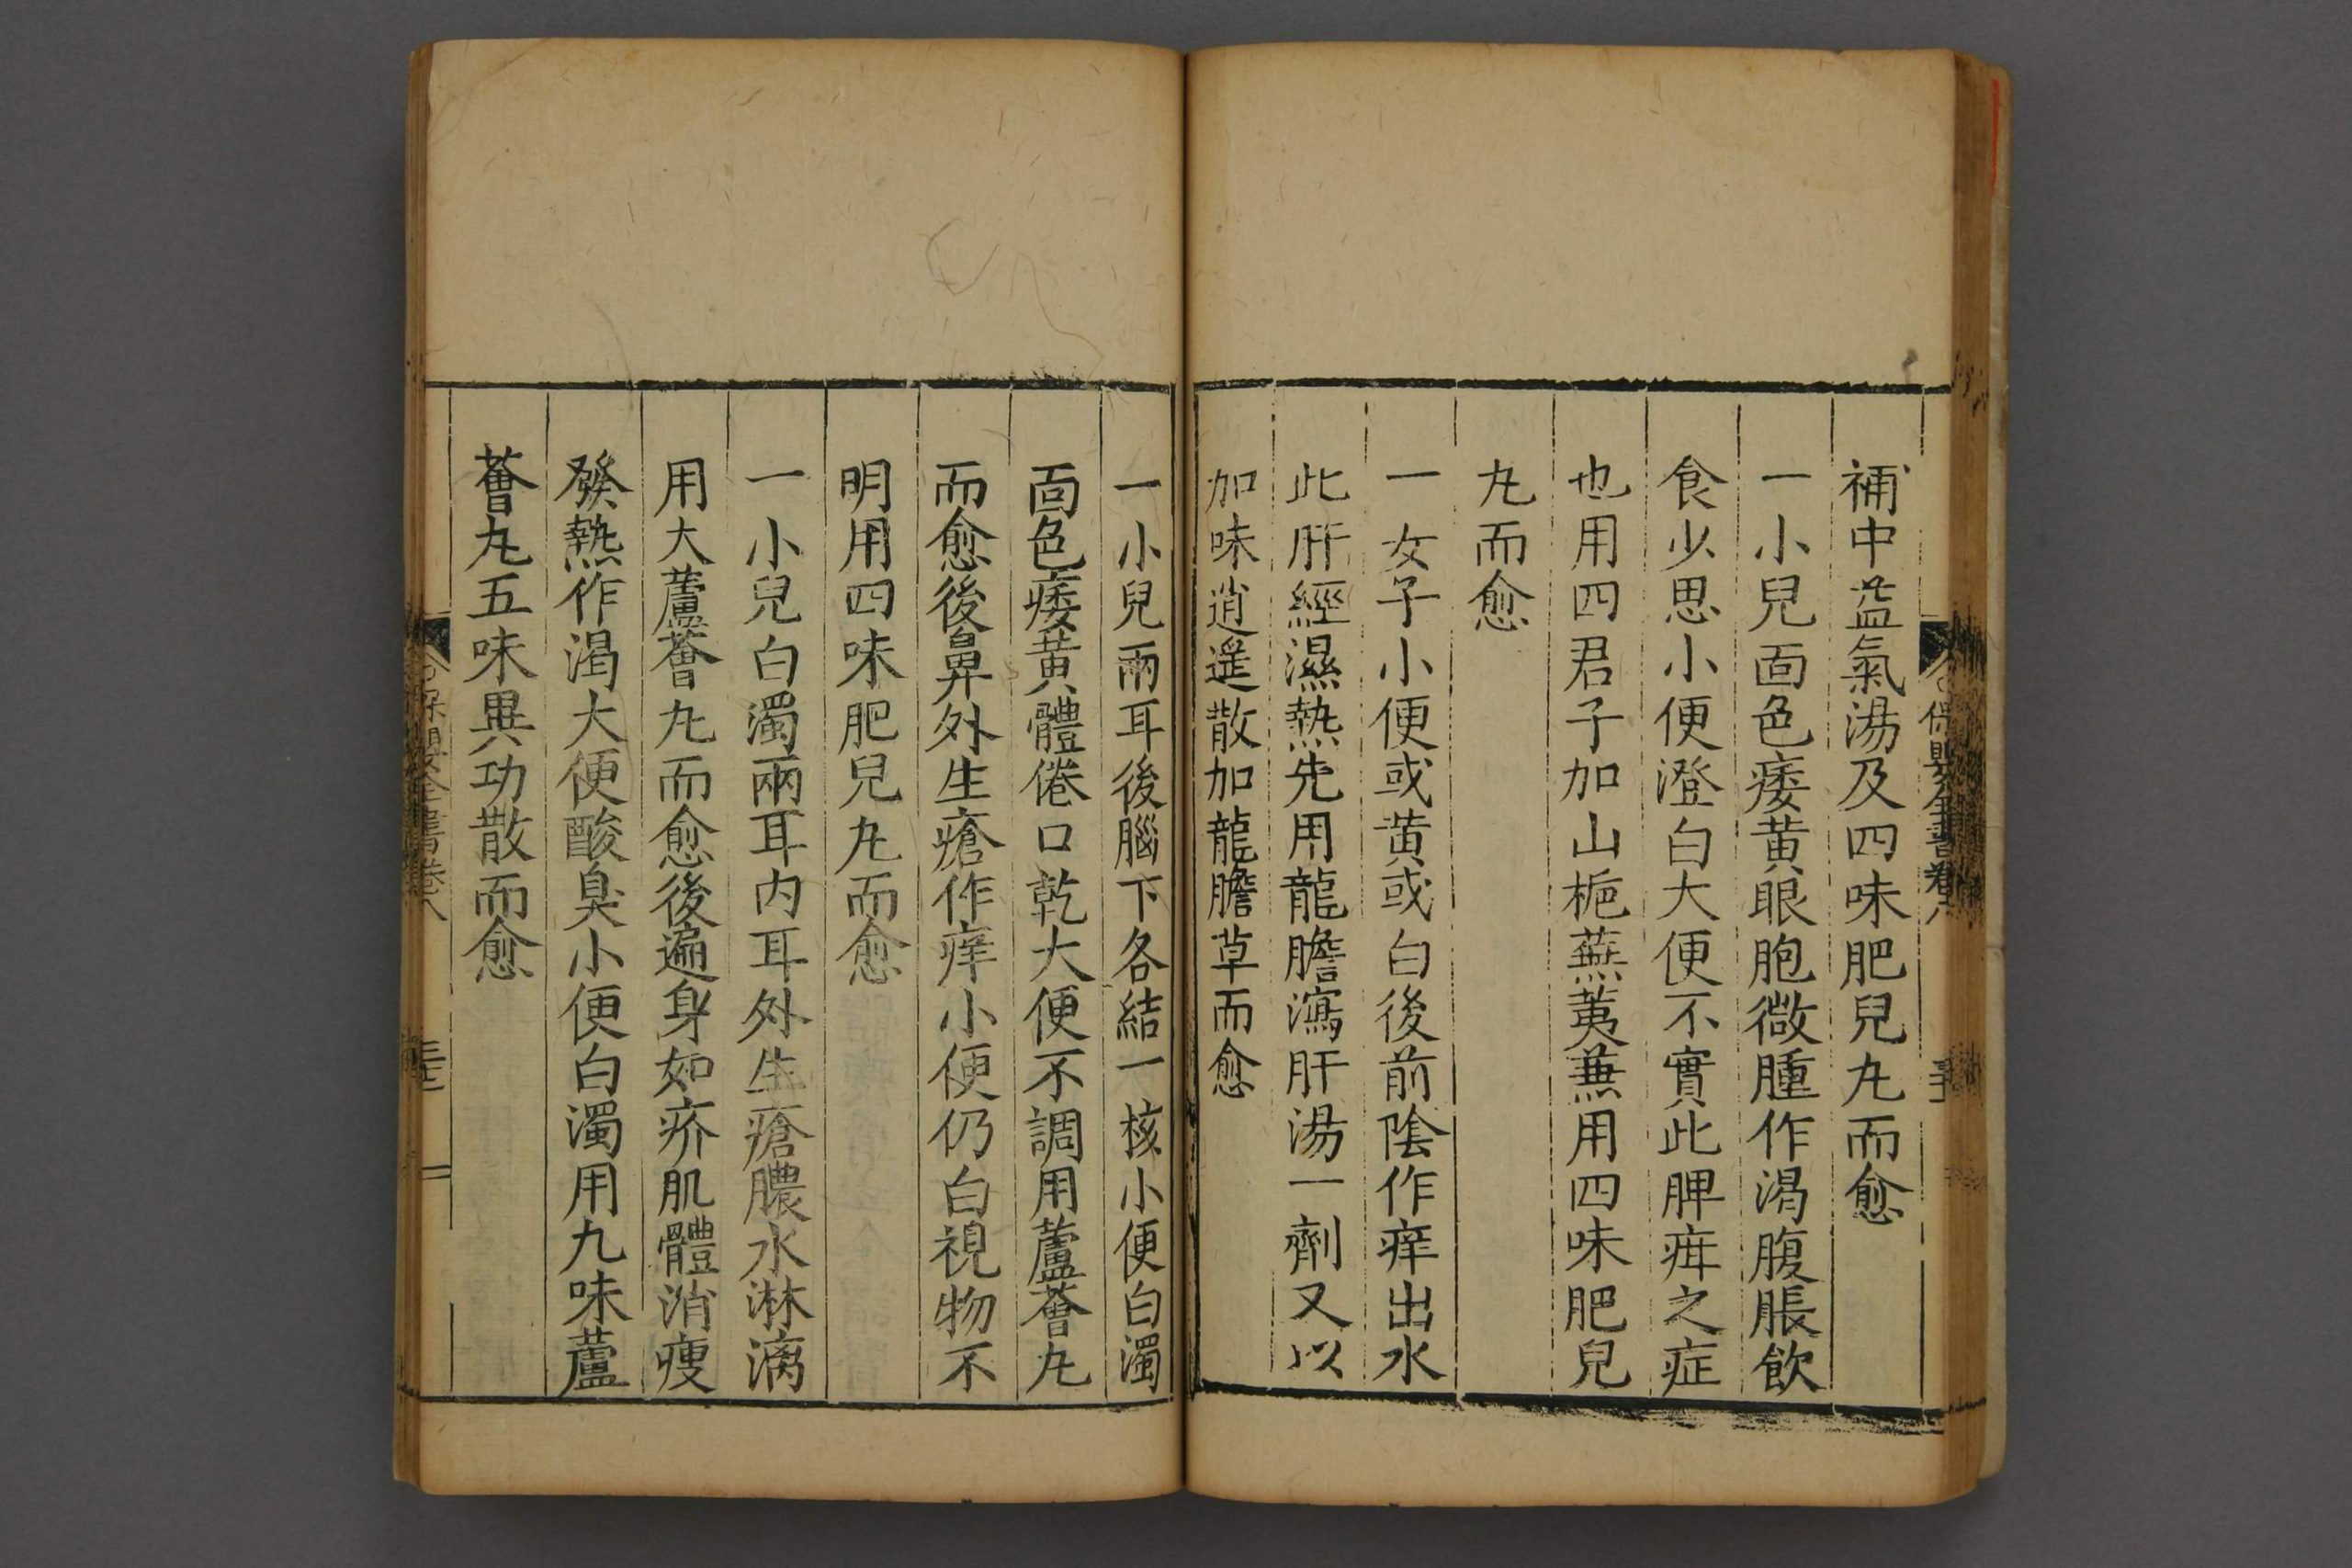 補中益氣湯及四味肥兒丸而愈
一小兒面色痿黄眼胞微腫作渴腹脹飲
食少思小便澄白大便不實此脾疳之症
也用四君子加山梔蕪荑兼用四味肥兒
丸而愈
一女子小便或黄或白後前陰作痒出水
此肝經濕熱先用龍膽瀉肝湯一劑又以
加味逍遥散加龍膽草而愈
一小兒兩耳後腦下各結一核小便白濁
面色痿黄體倦口乾大便不調用蘆薈丸
而愈後鼻外生瘡作痒小便仍白視物不
明用四味肥兒丸而愈
一小兒白濁兩耳内耳外生瘡膿水淋漓
用大蘆薈丸而愈後遍身如疥肌體消瘦
發熱作渴大便酸臭小便白濁用九味蘆
薈丸五味異功散而愈
保嬰全書卷八